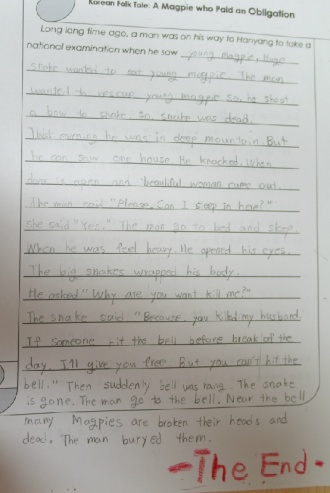 Korean Folk Tale: A Magpie who Paid an Obligation
Long long time ago, a man was on his way to Hanyang to take a
national examination when he saw young magpie. Huge
snake wanted to eat young magpie. The man
wanted to rescue young magpie so he shoot
a bow to snake. So, snake was dead.
That evening he was in deep mountain. But
he can saw one house. He knocked. When
door is open and beautiful woman came out.
The man said "Please, Can I sleep in here?"
She said "Yes." The man go to bed and sleep.
When he was feel heavy He opened his eyes.
The big snakes wrapped his body.
He asked "Why are you want kill me?"
The snake said "Because, you killed my husband.
If someone hit the bell before break of the
day, I'll give you free. But you can't hit the
bell." Then suddenly bell was rang. The snake
is gone. The man go to the bell. Near the bell
many Magpies are broken their heads and
dead. The man buryed them.
-The End-